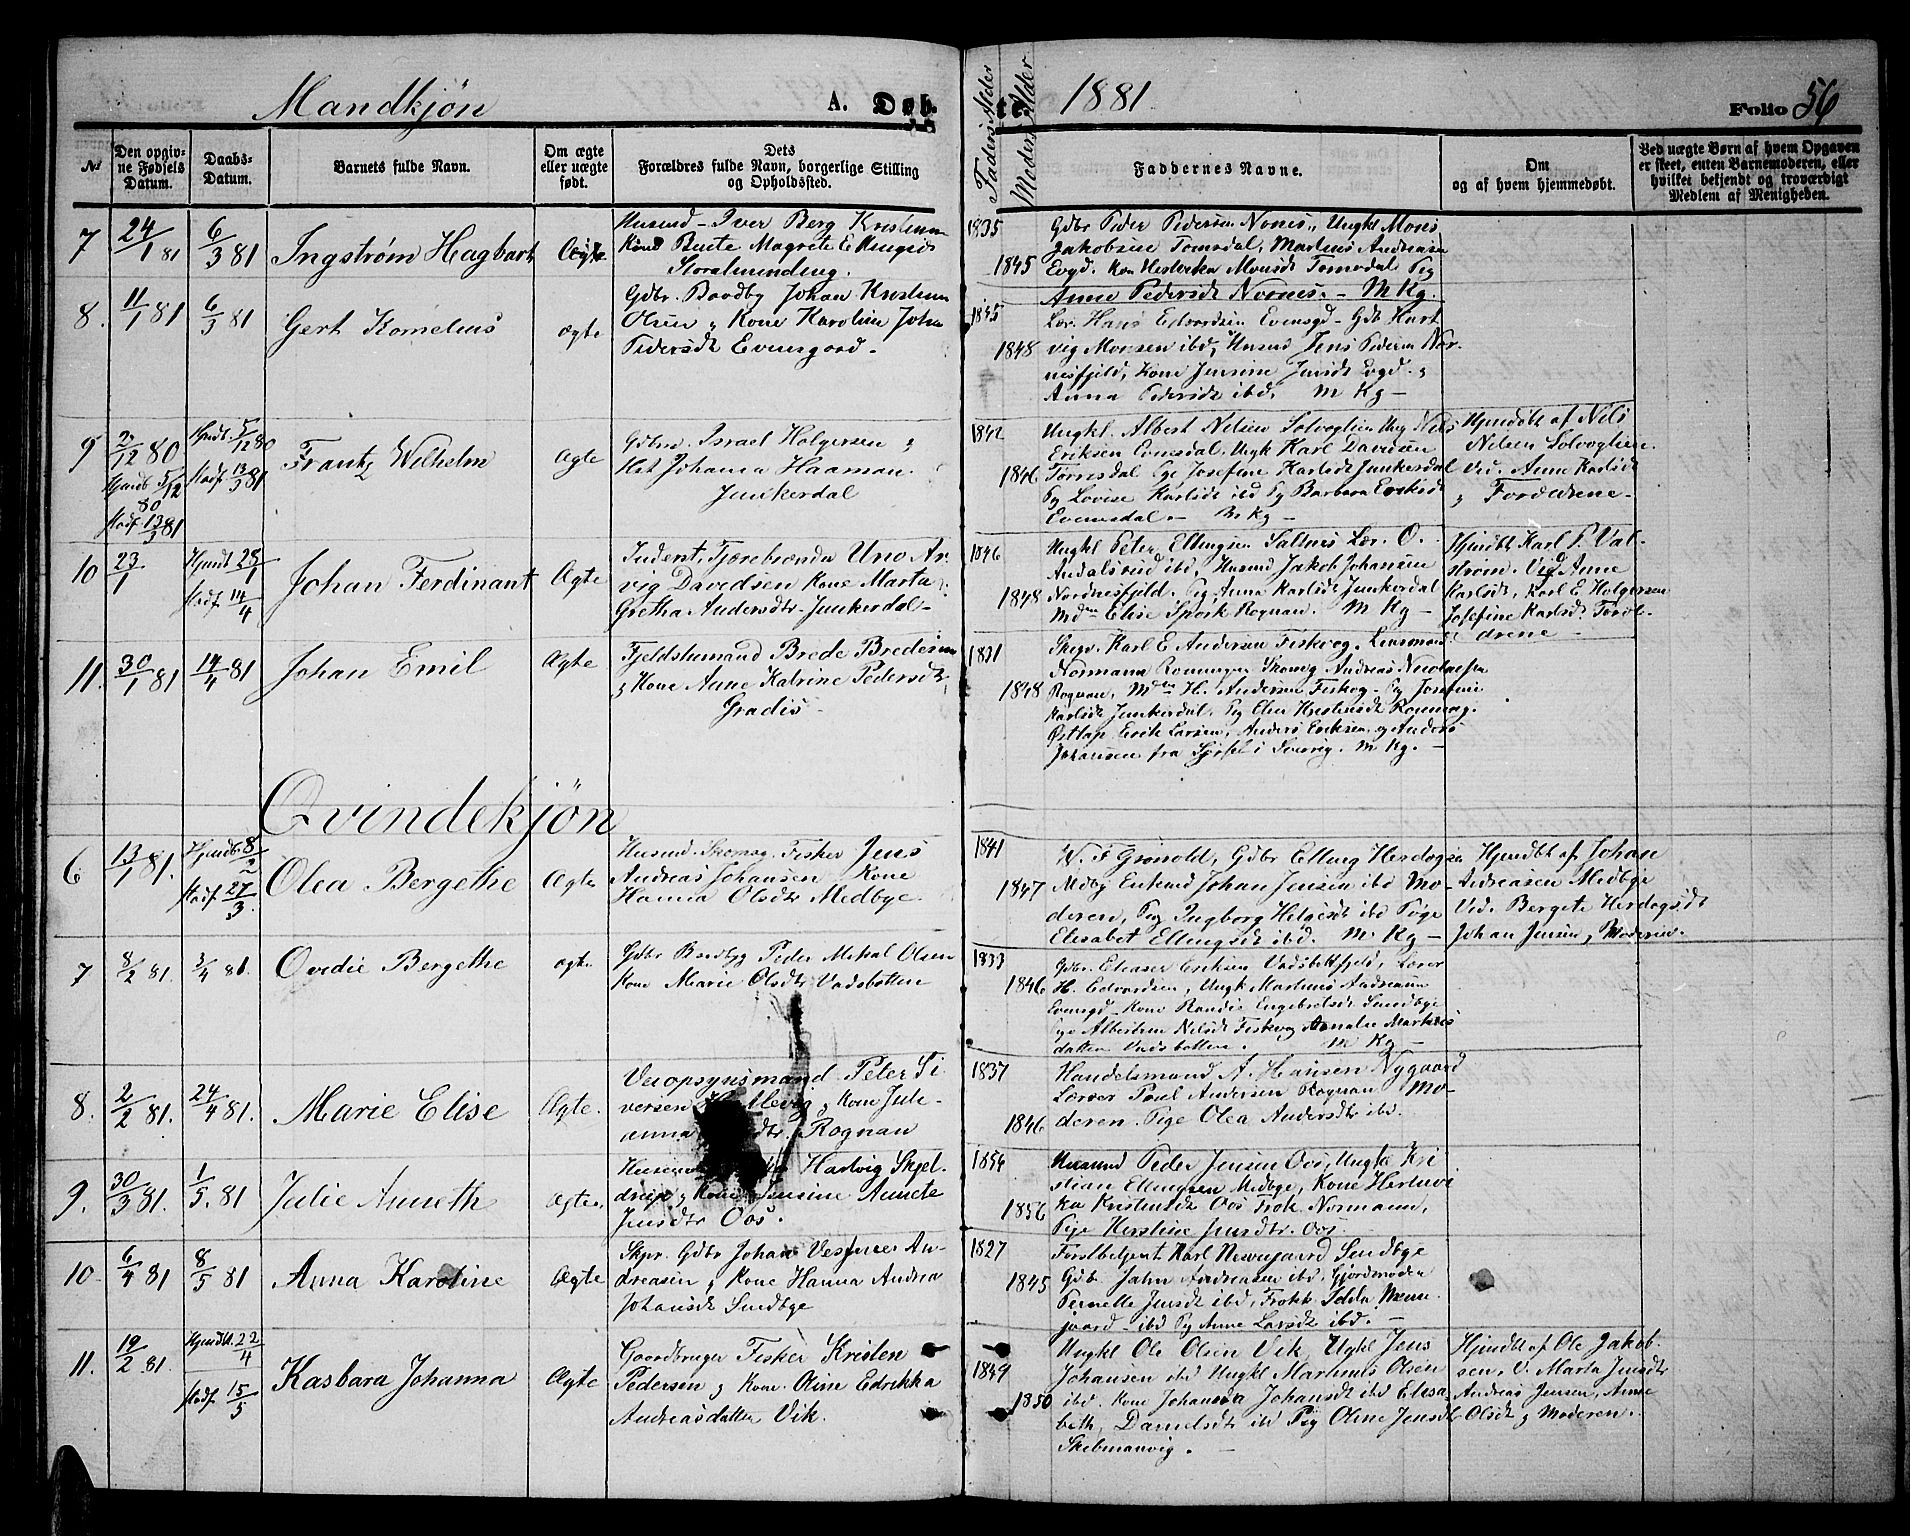 Mandkjøn
A. Døbte.
1881
Folio 56
Faderns Alder
Moders Alder
№
Den opgivne Fødsels Datum.
Daabs-Datum.
Barnets fulde Navn.
Om ægte eller uægte født.
Dets Forældres fulde Navn, borgerlige Stilling og Opholdssted.
Faddernes Navne.
Om og af hvem hjemmedøbt.
Ved uægte Børn af hvem Opgaven er skeet, enten Barnemoderen, eller hvilket bekjendt og troværdigt Medlem af Menigheden.
7 24/1 81 6/3 81 Ingstrøm Hagbart Ægte
Husmd Iver Berg Kristian
Kone Berte Magrete
1835
1845
Gdbr Peder Pedersen Nornes, Ungkl Mons
Jakobsen Tomsdal, Martinus Andreasen
Evgd. Kon Monsdt Tomsdal Pig
Anne Pedersdt Nornes. – M Kg.
8. 11/1 81 6/3 81 Gert Kornelius ægte
Gdbr. Johan Kristian
Olsen, Kone Karoline Joha
Pedersdt Evensgaard.
1845
1848
Lær. Hans Edvardsen Evensgd – Gdb Hart
vig Monsen ibd, Husmd Jens Pedersen Nor
nesfjeld, Kone Jensine Jensdt Evgd. og
Anna Pedersdt ibd. M Kg –
9 2/12 80 Hjmdt. 5/12 80 Stadf 13/3 81 Frantz Wilhelm ægte
Hjmdt 5/12 80
Stadf. 13/3 81
Gdbm. Israel Holgersen og
Johanna Haaman
Junkerdal
1842
1846
Ungkl. Albert Nilsen Solvoglien Ung Nils
Eriksen Evensdal, Ungk Karl Davidsen
Tornsdal Pge Josefine Karlsdt Junkersdal
Pg Lovise Karlsdt ibd Pg Barbara Eriksdt
Evensdal – M Kg –
Hjmdøbt af Nils
Nilsen Solvoglien
Ved. Anne Karlsdt
og Forældrene –
10 23/1 Hjmdt 28/1 Stadf 14/4 Johan Ferdinant Ægte
Inderst, Tjærebrænder Uno Ar
vig Davidsen Kone Marta
Gretha Andersdtr Junkerdal –
1846
1848
Ungkl Peter Ellingsen Saltnes Lær. O.
Andalsrud ibd Husmd Jakob Johansen
Nordnesfjeld. Pg Anna Karlsdt Junkerdal
Mdm Elise Spørk Rognan. M Kg –
Hjmdøbt Karl P. Val-
strøm. Ved Anne
Karlsdt, Karl E. Holgersen
Josefine Karlsdt Foræl-
drene –
11. 30/1 81 14/4 81 Johan Emil Ægte
Fjeldstumand Brede Bredesen
og Kone Anne Katrine Pedersdt
Gradis
1831
1848
Skpr. Karl E Andersen Fiskvog. Lensmand
Normann Skomg Andreas Nicolaisen
Rognan, Mdm H. Andersen Fiskvog – Pg Josefine
Karlsdt Junkerdal. Pg Elen Kristensdt
Østlap Erik Larsen, Anders Eriksen og Anders
Johansen fra i Sverrig. M Kg. –
Qvindekjøn
6 13/1 81. Hjmdt. 8/2 Stadf 27/3. Olea Bergethe Ægte
Husmd. Skomag. Fisker Jens
Andreas Johansen Kone
Hanna Olsdtr Medbye.
1841
1847
W. F Grønold, Gdbr Elling Herdogsen
Medby Enkmd Johan Jensen ibd Mo-
deren, Pig Ingborg Helgesdt ibd Pige
Elisabet Ellingsdt ibd. M. Kg –
Hjmdbt af Johan
Andreasen Medbye
Ved. Bergete Herdogsdt
Johan Jensen, Moderen.
7 8/2 81. 3/4 81. Ovedie Bergethe ægte
Gdbr Peder Mikal Olsen
Kone Marie Olsdtr Vadsbotten
1833
1846
Gdbr. Eleaser Eriksen Vadsbotfjeld, Lærer
H. Edvardsen, Ungk Martinus Andreasen
Evensgd – Kone Randis Engebretsdt Sundbye
Pge Albertine Nilsdt Fiskvog Amalie Martines
datter Vadsbotten. M Kg –
8. 2/2 81. 24/4 81. Marie Elise Ægte.
Veiopsynsmand Peter Si
versen og Kone Juli-
anna Rognan
1837
1846
Handelsmand A. Hansen Nygaard
Lærer Poul Andersen Rognan Mo-
deren. Pige Olea Andersdtr ibd.
9. 30/3 81. 1/5. 81 Julie Anneth Ægte.
Hartvig Skjel-
drup, Kone Jensine Annete
Jensdtr Oos.
1854
1856
Husmd Peder Jensen Oos, Ungkl Kri
stian Ellingsen Medbye, Kone Hertovi
ka Kristensdt Oos Frøk. Normann,
Pige Kerstine Jensdtr. Oos
10. 6/4 81 8/5 81 Anna Karoline Ægte
Skpr. Gdbr Johan An-
dreasen og Kone Hanna Andrea
Johansdt Sundbye
1827
1845
Forstbetjent Karl Sundbye
Gdb. John Andreasen ibd. Gjordmoder
Pernelle Jensdt ibd, Frøkk. Idda
gaard – ibd Pg Anne Larsdt ibd. –
11. 19/2 81. Hjmdt. 22/4 Stadf 15/5 Kasbara Johanna Ægte
Gaardbruger Fisker Kristen
Pedersen og Kone Oline Edrikka
Andreasdatter Vik.
1849
1850
Ungkl Ole Olsen Vik, Ugkl Jens
Johansen ibd Ungkl Martinus Olsen
ibd. Kone Johanna Johansdt ibd Elisa-
beth, Danielsdtr ibd Pig Oline Jensdt
Skebmannvig. –
Hjmdt af Ole Jakob-
sen, V. Marta Jensdtr
Andreas Jensen, Anne
Olsdt og Moderen.